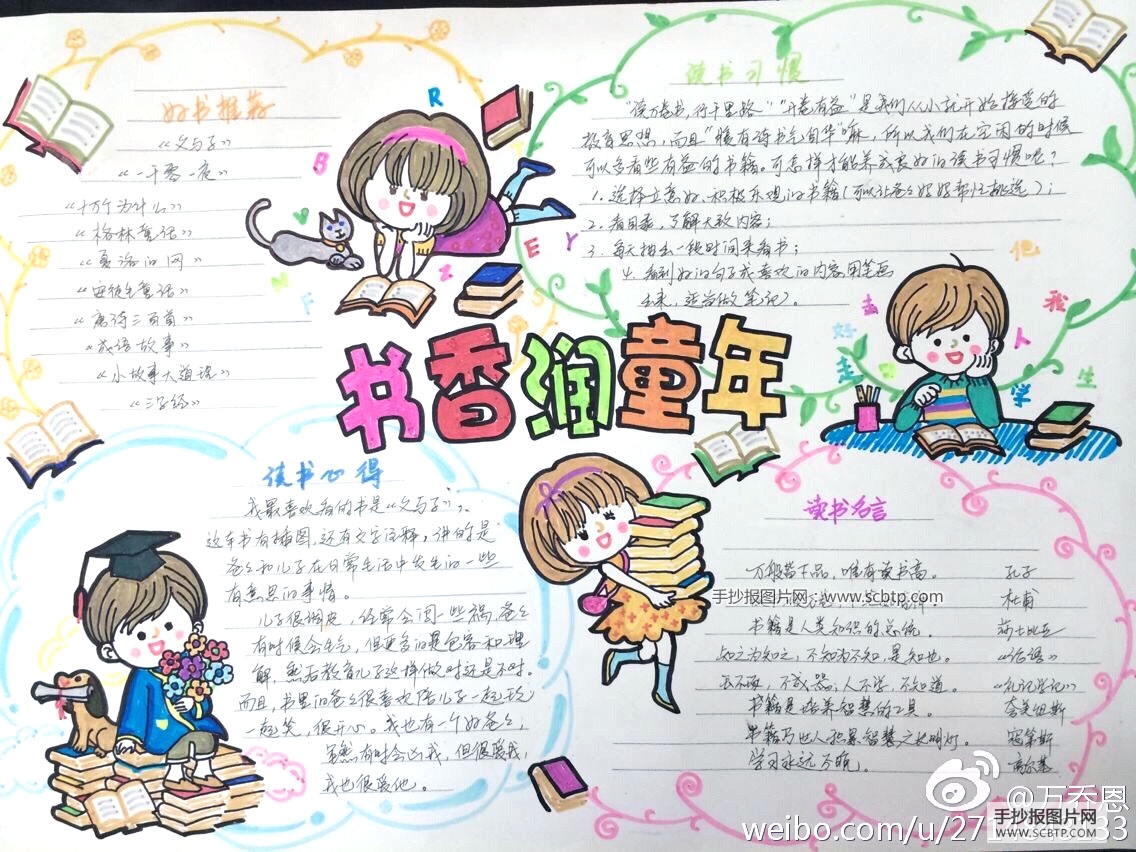 好书推荐
《父与子》
《一千零一夜》
《十万个为什么》
《格林童话》
《夏洛的网》
《安徒生童话》
《唐诗三百首》
《成语故事》
《小故事大道理》
《三字经》
R
B
E
Y
M
F
Z
S
读书习惯
"读万卷书,行千里路""开卷有益"是我们从小就开始接受的
教育思想,而且"腹有诗书气自华"嘛,所以我们在空闲的时候
可以多看些有益的书籍。可怎样才能养成良好的读书习惯呢?
1.选择立意好、积极乐观的书籍(可以让爸爸妈妈帮忙挑选);
2.看目录,了解大致内容;
3.每天抽出一段时间来看书;
4.看到好的句子或喜欢的内容用笔画
出来,适当做笔记。
书香润童年
他
我
去
人
好
走
学
生
读书心得
我最喜欢看的书是《父与子》,
这本书有插图,还有文字注释,讲的是
爸爸和儿子在日常生活中发生的一些
有意思的事情。
儿子很调皮,经常会闯一些祸,爸爸
有时候会生气,但更多的是包容和理
解,然后教育儿子这样做对还是不对。
而且,书里的爸爸很喜欢陪儿子一起玩,
一起笑,很开心。我也有一个好爸爸,
虽然有时会凶我,但很爱我,
我也很爱他。
读书名言
万般皆下品,惟有读书高。 孔子
杜甫
书籍是人类知识的总统。 莎士比亚
知之为知之,不知为不知,是知也。 《论语》
玉不琢,不成器;人不学,不知道。 《礼记学记》
书籍是培养智慧的工具。 夸美纽斯
书籍乃世人积累智慧之长明灯。 寇第斯
学习永远不晚。 高尔基
手抄报图片网:www.scbtp.com
@万乔恩
手抄报图片网
WWW.SCBTP.COM